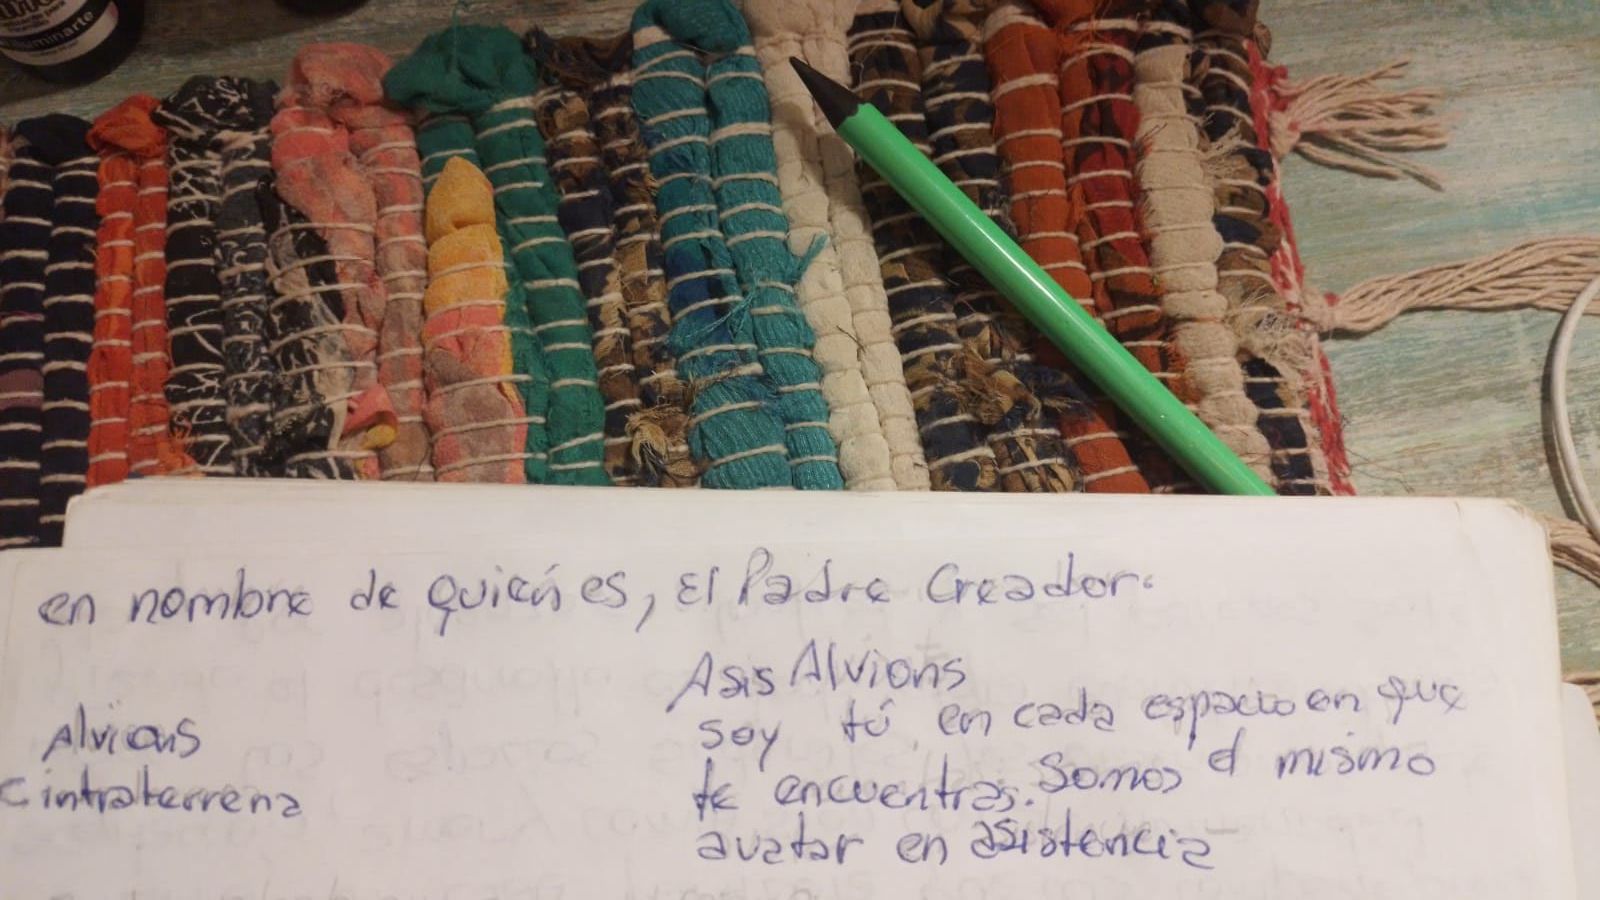 uminarte
en nombre de quién es, El Padre Creador.
Asis Alvions
soy tú en cada espacio en que
te encuentras. Somos el mismo
avatar en asistencia
Alvions
intraterrena